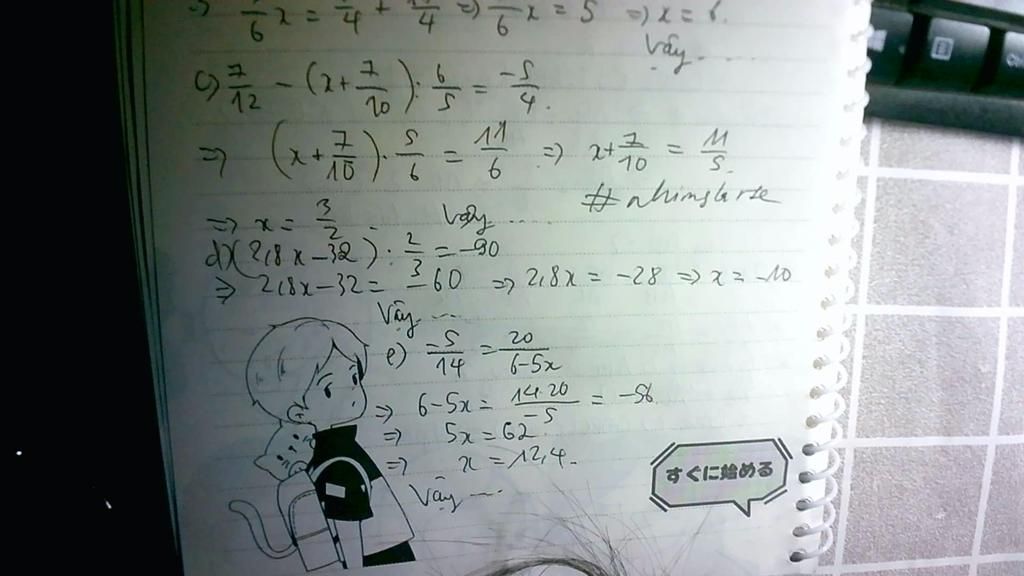 6x = 4 + 4 => 6x = 5 => x = 6.
Vậy ....
c) 7/12 - (x + 7/10) . 6/5 = -5/4.
=> (x + 7/10) . 5/6 = 11/6 => x + 7/10 = 11/5.
#nhimslarse
=> x = 3/2. Vậy ....
d) (2,8x - 32) . 2/3 = -90
=> 2,8x - 32 = -60 => 2,8x = -28 => x = -10
Vậy ....
e) -5/14 = 20/6-5x
=> 6-5x = 14.20/-5 = -56
=> 5x = 62
=> x = 12,4.
Vậy ....
すぐに始める